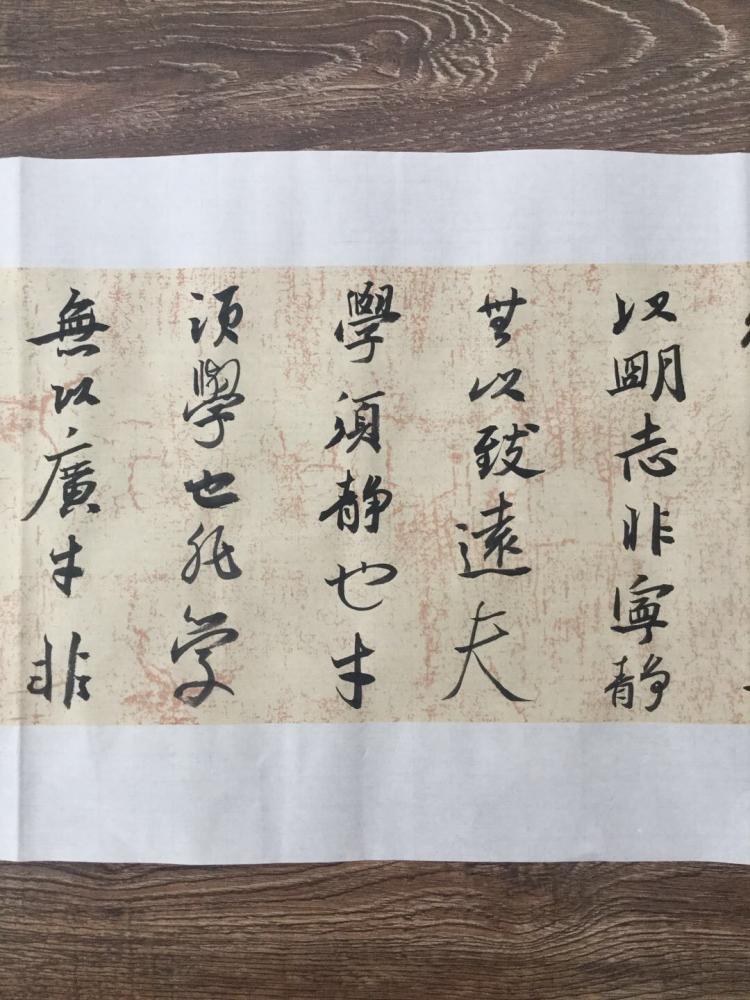 以明志非寧靜
無以致遠夫
學須靜也才
須學也非學
無以廣才非